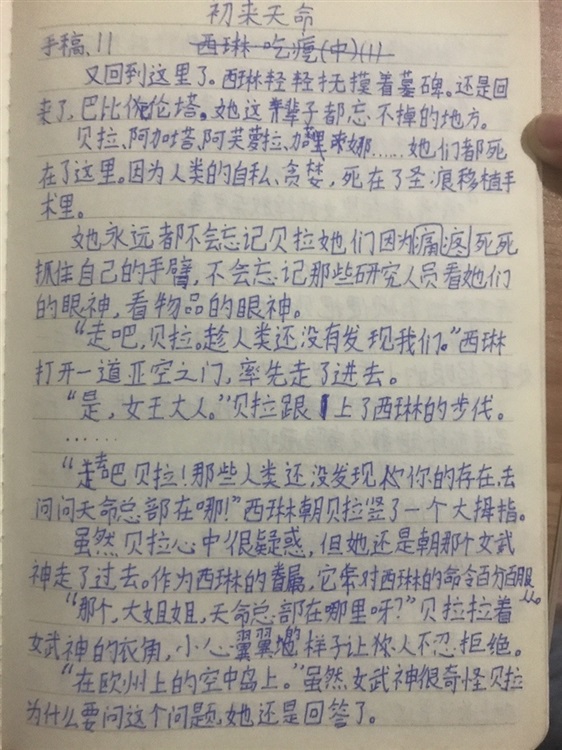 初来天命
手稿、11
西琳吃瘪(中)(1)
又回到这里了。西琳轻轻抚摸着墓碑。还是回
来了,巴比伦塔。她这辈子都忘不掉的地方。
贝拉、阿加塔、阿芙萝拉、加里娜……她们都死
在了这里。因为人类的自私、贪婪,死在了圣痕移植手
术里。
她永远都不会忘记贝拉她们因为痛疼死死
抓住自己的手臂,不会忘记那些研究人员看她们
的眼神,看物品的眼神。
“走吧,贝拉。趁人类还没有发现我们。”西琳
打开一道亚空之门,率先走了进去。
“是,女王大人。”贝拉跟上了西琳的步伐。
……
“去吧贝拉!那些人类还没发现你的存在,去
问问天命总部在哪!”西琳朝贝拉竖了一个大拇指。
虽然贝拉心中很疑惑,但她还是朝那个女武
神走了过去。作为西琳的眷属,它常对西琳的命令百分百服
“那个,大姐姐,天命总部在哪里呀?”贝拉拉着
女武神的衣角,小心翼翼的样子让你人不忍拒绝。
“在欧州上的空中岛上。”虽然女武神很奇怪贝拉
为什么要问这个问题,她还是回答了。